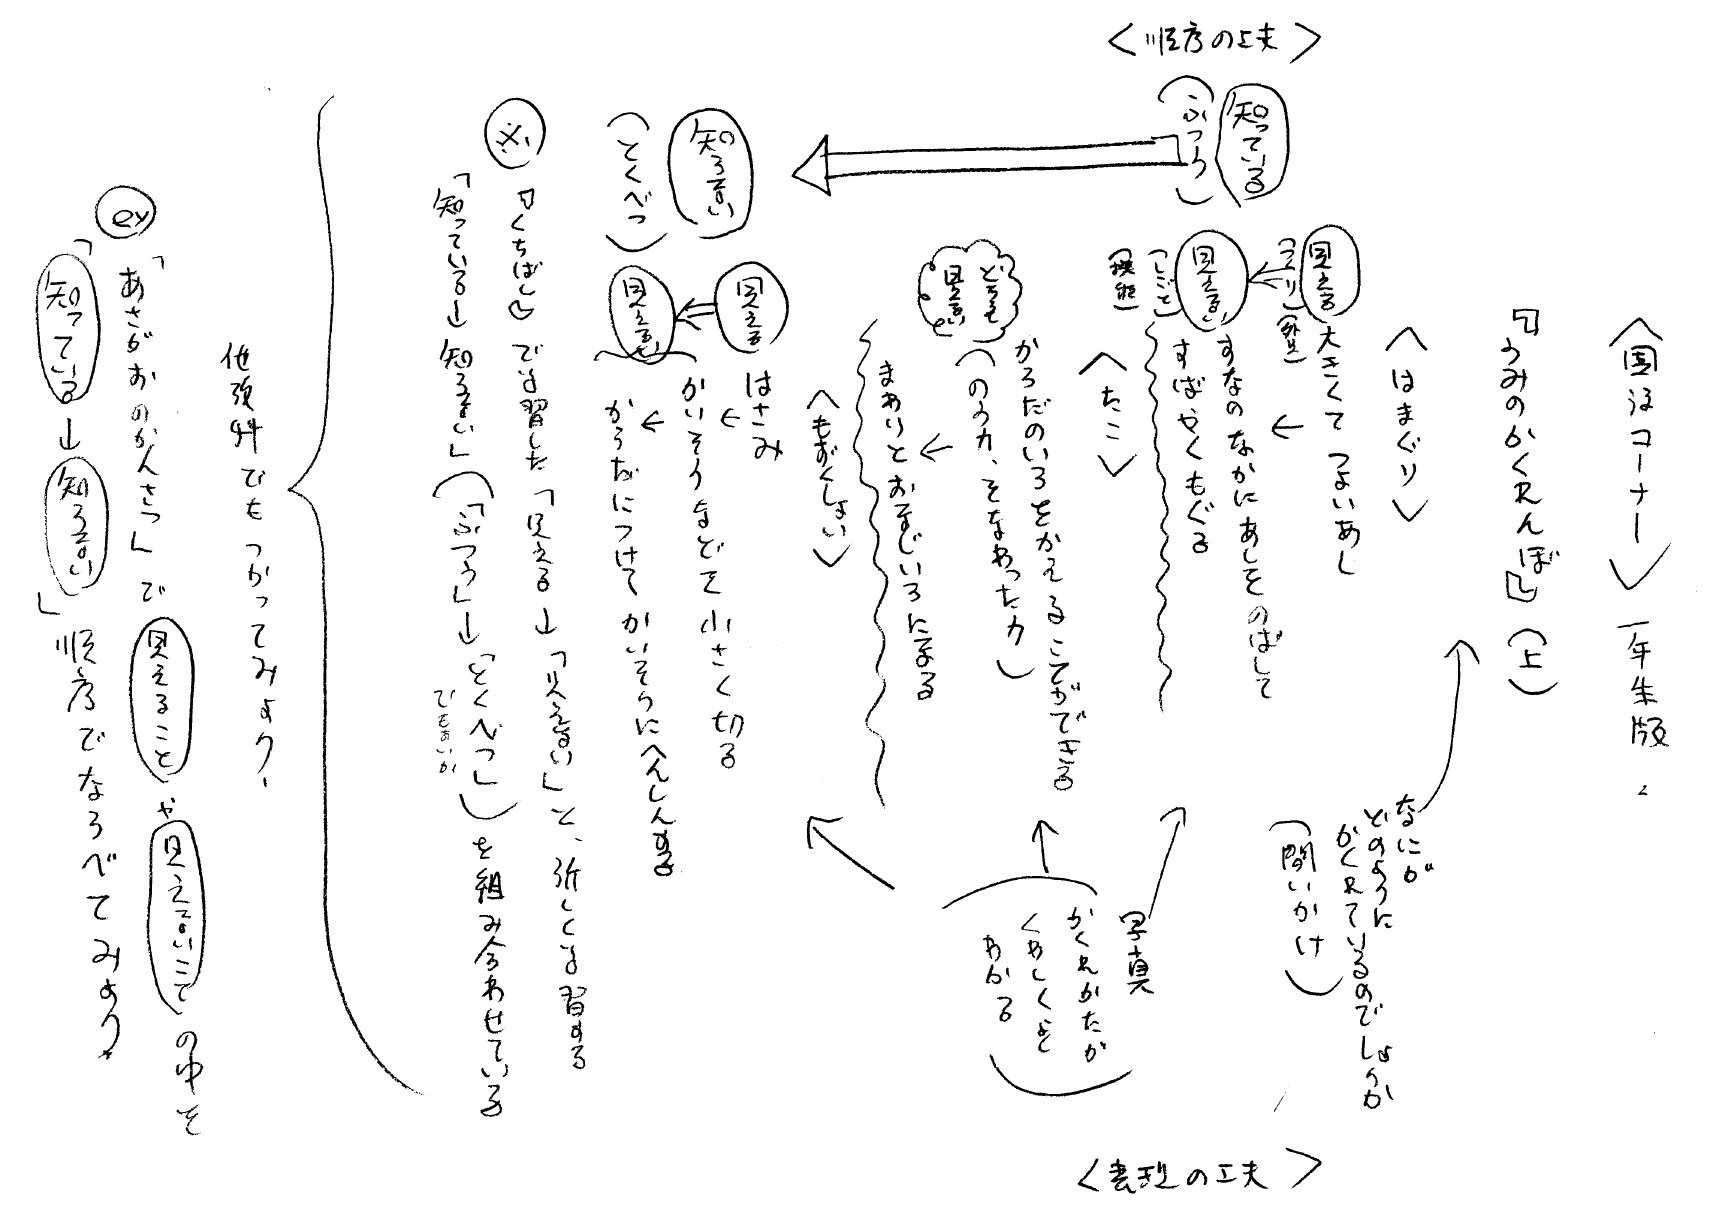 ＜国語コーナー＞ 一年生版
『うみのかくれんぼ』(上)
なにが
どのように
かくれているのでしょうか
(問いかけ)
＜順序の工夫＞
知っている
(ふつう)
＜はまぐり＞
見える
(つくり)(外見)
大きくて つよいあし
見えない
(しごと)
(機能)
すなのなかにあしをのばして
すばやくもぐる
＜たこ＞
どちらも
見えない
からだのいろをかえることができる
(のう力、そなわった力)
まわりとおなじいろになる
＜もずくしょい＞
知らない
(とくべつ)
見える
はさみ
かいそうなどを小さく切る
見えない
からだにつけて かいそうにへんしんする
写真
かくれかたが
くわしくを
わかる
＜表現の工夫＞
※
『くちばし』で学習した「見える→見えない」と、新しく学習する
「知っている→知らない」(「ふつう」→「とくべつ」)を組み合わせている
でもあいか
他領域でもつかってみよう。
ex
「あさがおのかんさつ」で 見えること や 見えないこと の中を
「知っている→知らない」順序でならべてみよう。